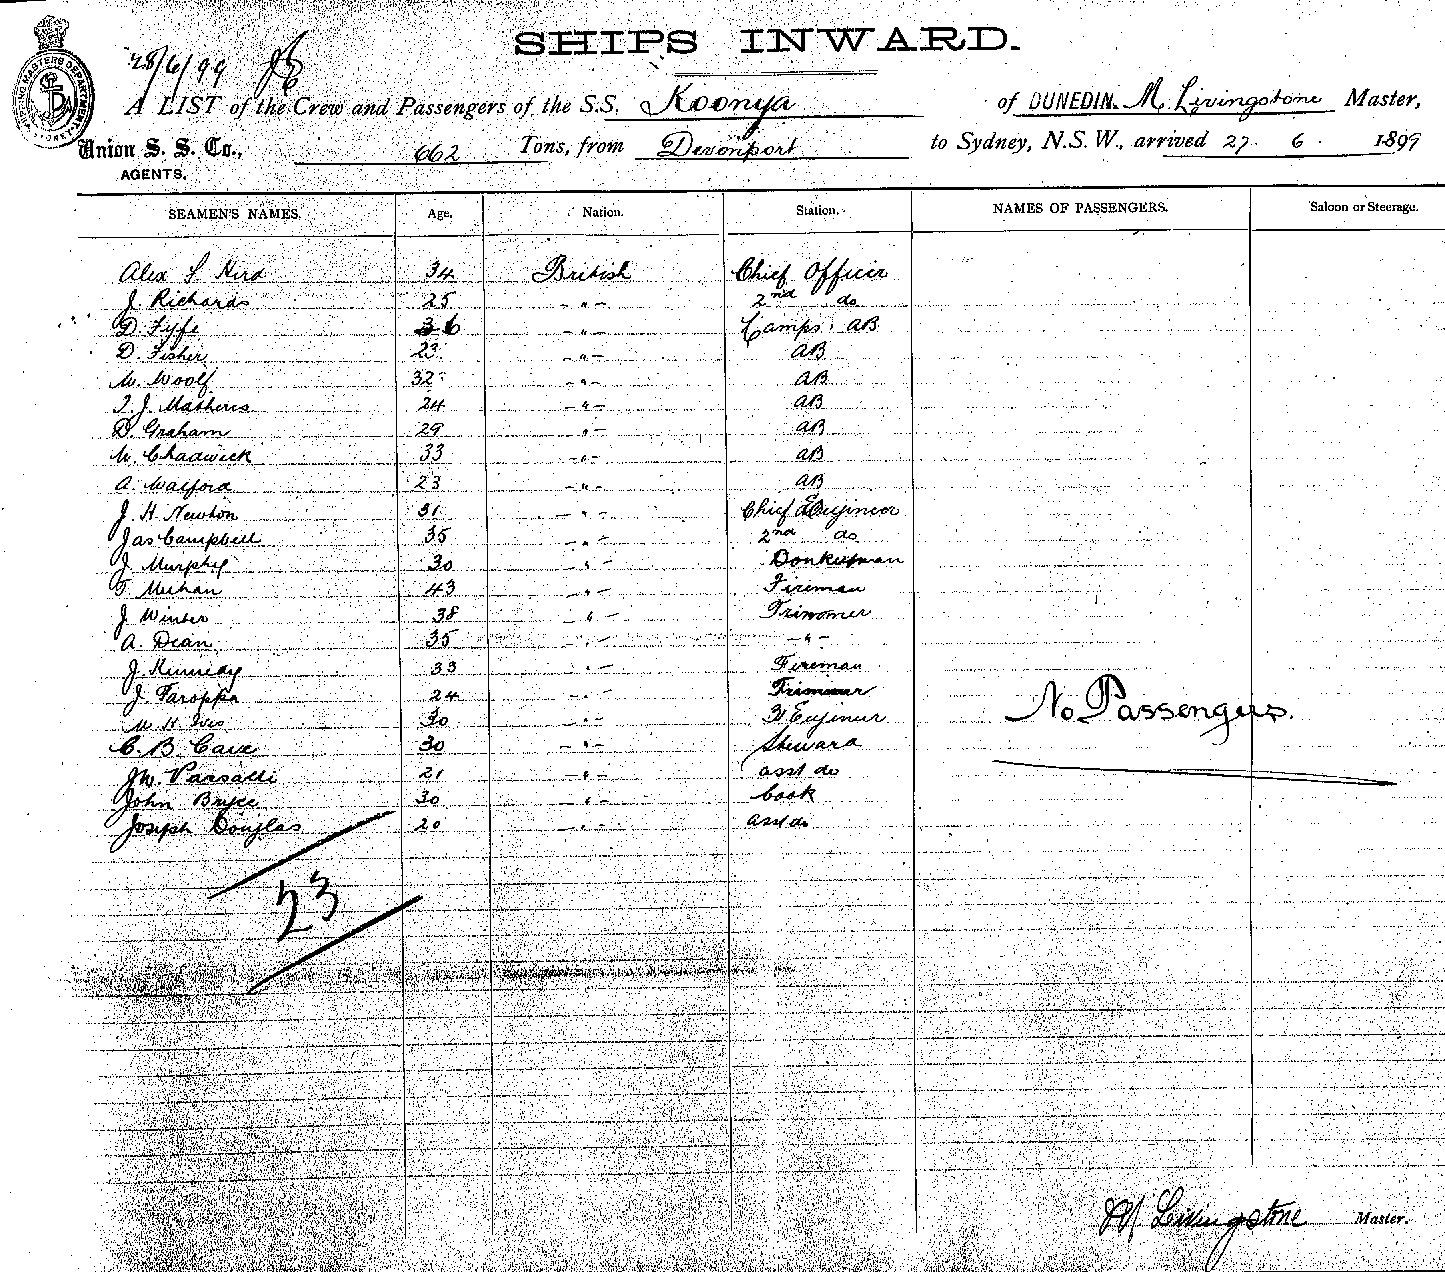 SHIPS INWARD.
28/6/99
A LIST of the Crew and Passengers of the S.S. Koonya of DUNEDIN. M. Livingstone Master,
Union S. S. Co., 662 Tons, from Devonport to Sydney, N.S.W., arrived 27. 6. 1899
AGENTS.
SEAMEN'S NAMES. Age. Nation. Station. NAMES OF PASSENGERS. Saloon or Steerage.
Alex S Hird 34 British Chief Officer
J. Richards 25 - " - 2nd do
D. Fyfe 36 - " - Lamps: AB
D. Fisher 23 - " - AB
W. Woolf 32 - " - AB
T. J. Matheris 24 - " - AB
D. Graham 29 - " - AB
W. Chadwick 33 - " - AB
A. Walford 23 - " - AB
J. H. Newton 31 - " - Chief Engineer
Jas Campbell 35 - " - 2nd do
J. Murphy 30 - " - Donkeyman
T Meehan 43 - " - Fireman
J Winter 38 " - Trimmer
A. Dean 35 - " - - " -
J. Kennedy 33 - " - Fireman
J. Faroppa 24 - " - Trimmer
W. H. Ives 30 - " - 3rd Engineer
No Passengers.
C. B. Cave 30 - " - Steward
J.W. 21 - " - asst do
John Bryce 30 - " - Cook
Joseph Douglas 20 - " - asst do
23
M Livingstone Master.